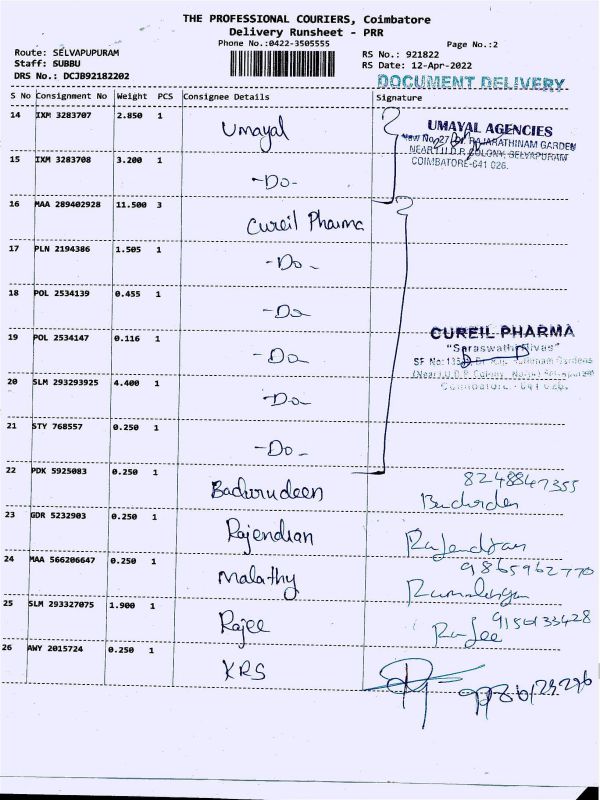 THE PROFESSIONAL COURIERS, Coimbatore
Delivery Runsheet - PRR
Phone No.:0422-3505555
Page No.:2
Route: SELVAPUPURAM
RS No.: 921822
Staff: SUBBU
RS Date: 12-Apr-2022
DRS No.: DCJB92182202
DOCUMENT DELIVERY
S No Consignment No Weight PCS Consignee Details Signature
14 IXM 3283707 2.850 1 Umayal
UMAYAL AGENCIES
New No. 27, RAJARATHINAM GARDEN
NEAR U.D.R. COLONY, SELVAPURAM
COIMBATORE-641 026.
15 IXM 3283708 3.200 1 -Do-
16 MAA 289402928 11.500 3 Cureil Pharma
17 PLN 2194386 1.505 1 -Do-
18 POL 2534139 0.455 1 -Do
19 POL 2534147 0.116 1 -Do
CUREIL PHARMA
"Saraswathi Nivas"
SF No:135
Coimbatore - 641 026.
20 SLM 293293925 4.400 1 -Do-
21 STY 768557 0.250 1 -Do-
22 PDK 5925083 0.250 1 Badurudeen
8248847355
23 GDR 5232903 0.250 1 Rajendian Rajendran
24 MAA 566206647 0.250 1 Malathy
9865962770
25 SLM 293327075 1.900 1 Rajee Rajee
26 AWY 2015724 0.250 1 KRS